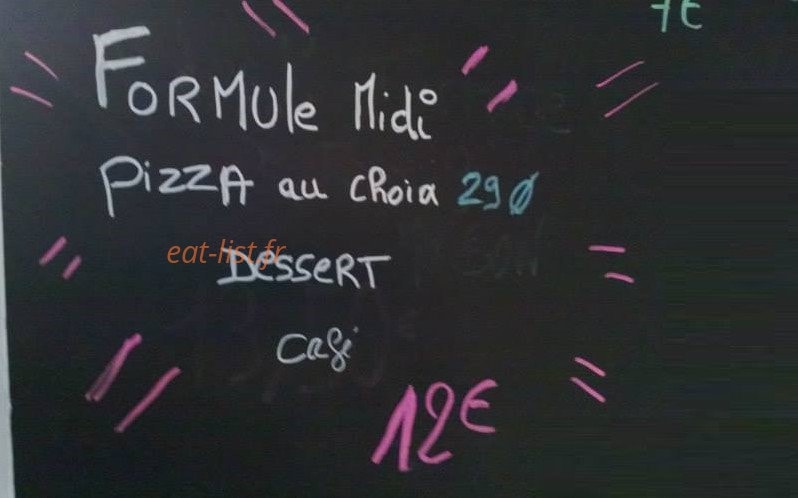 7€
FORMule Midi
PizzA au choix 29 Ø
eat-list.fr
DesseRT
Café
12€